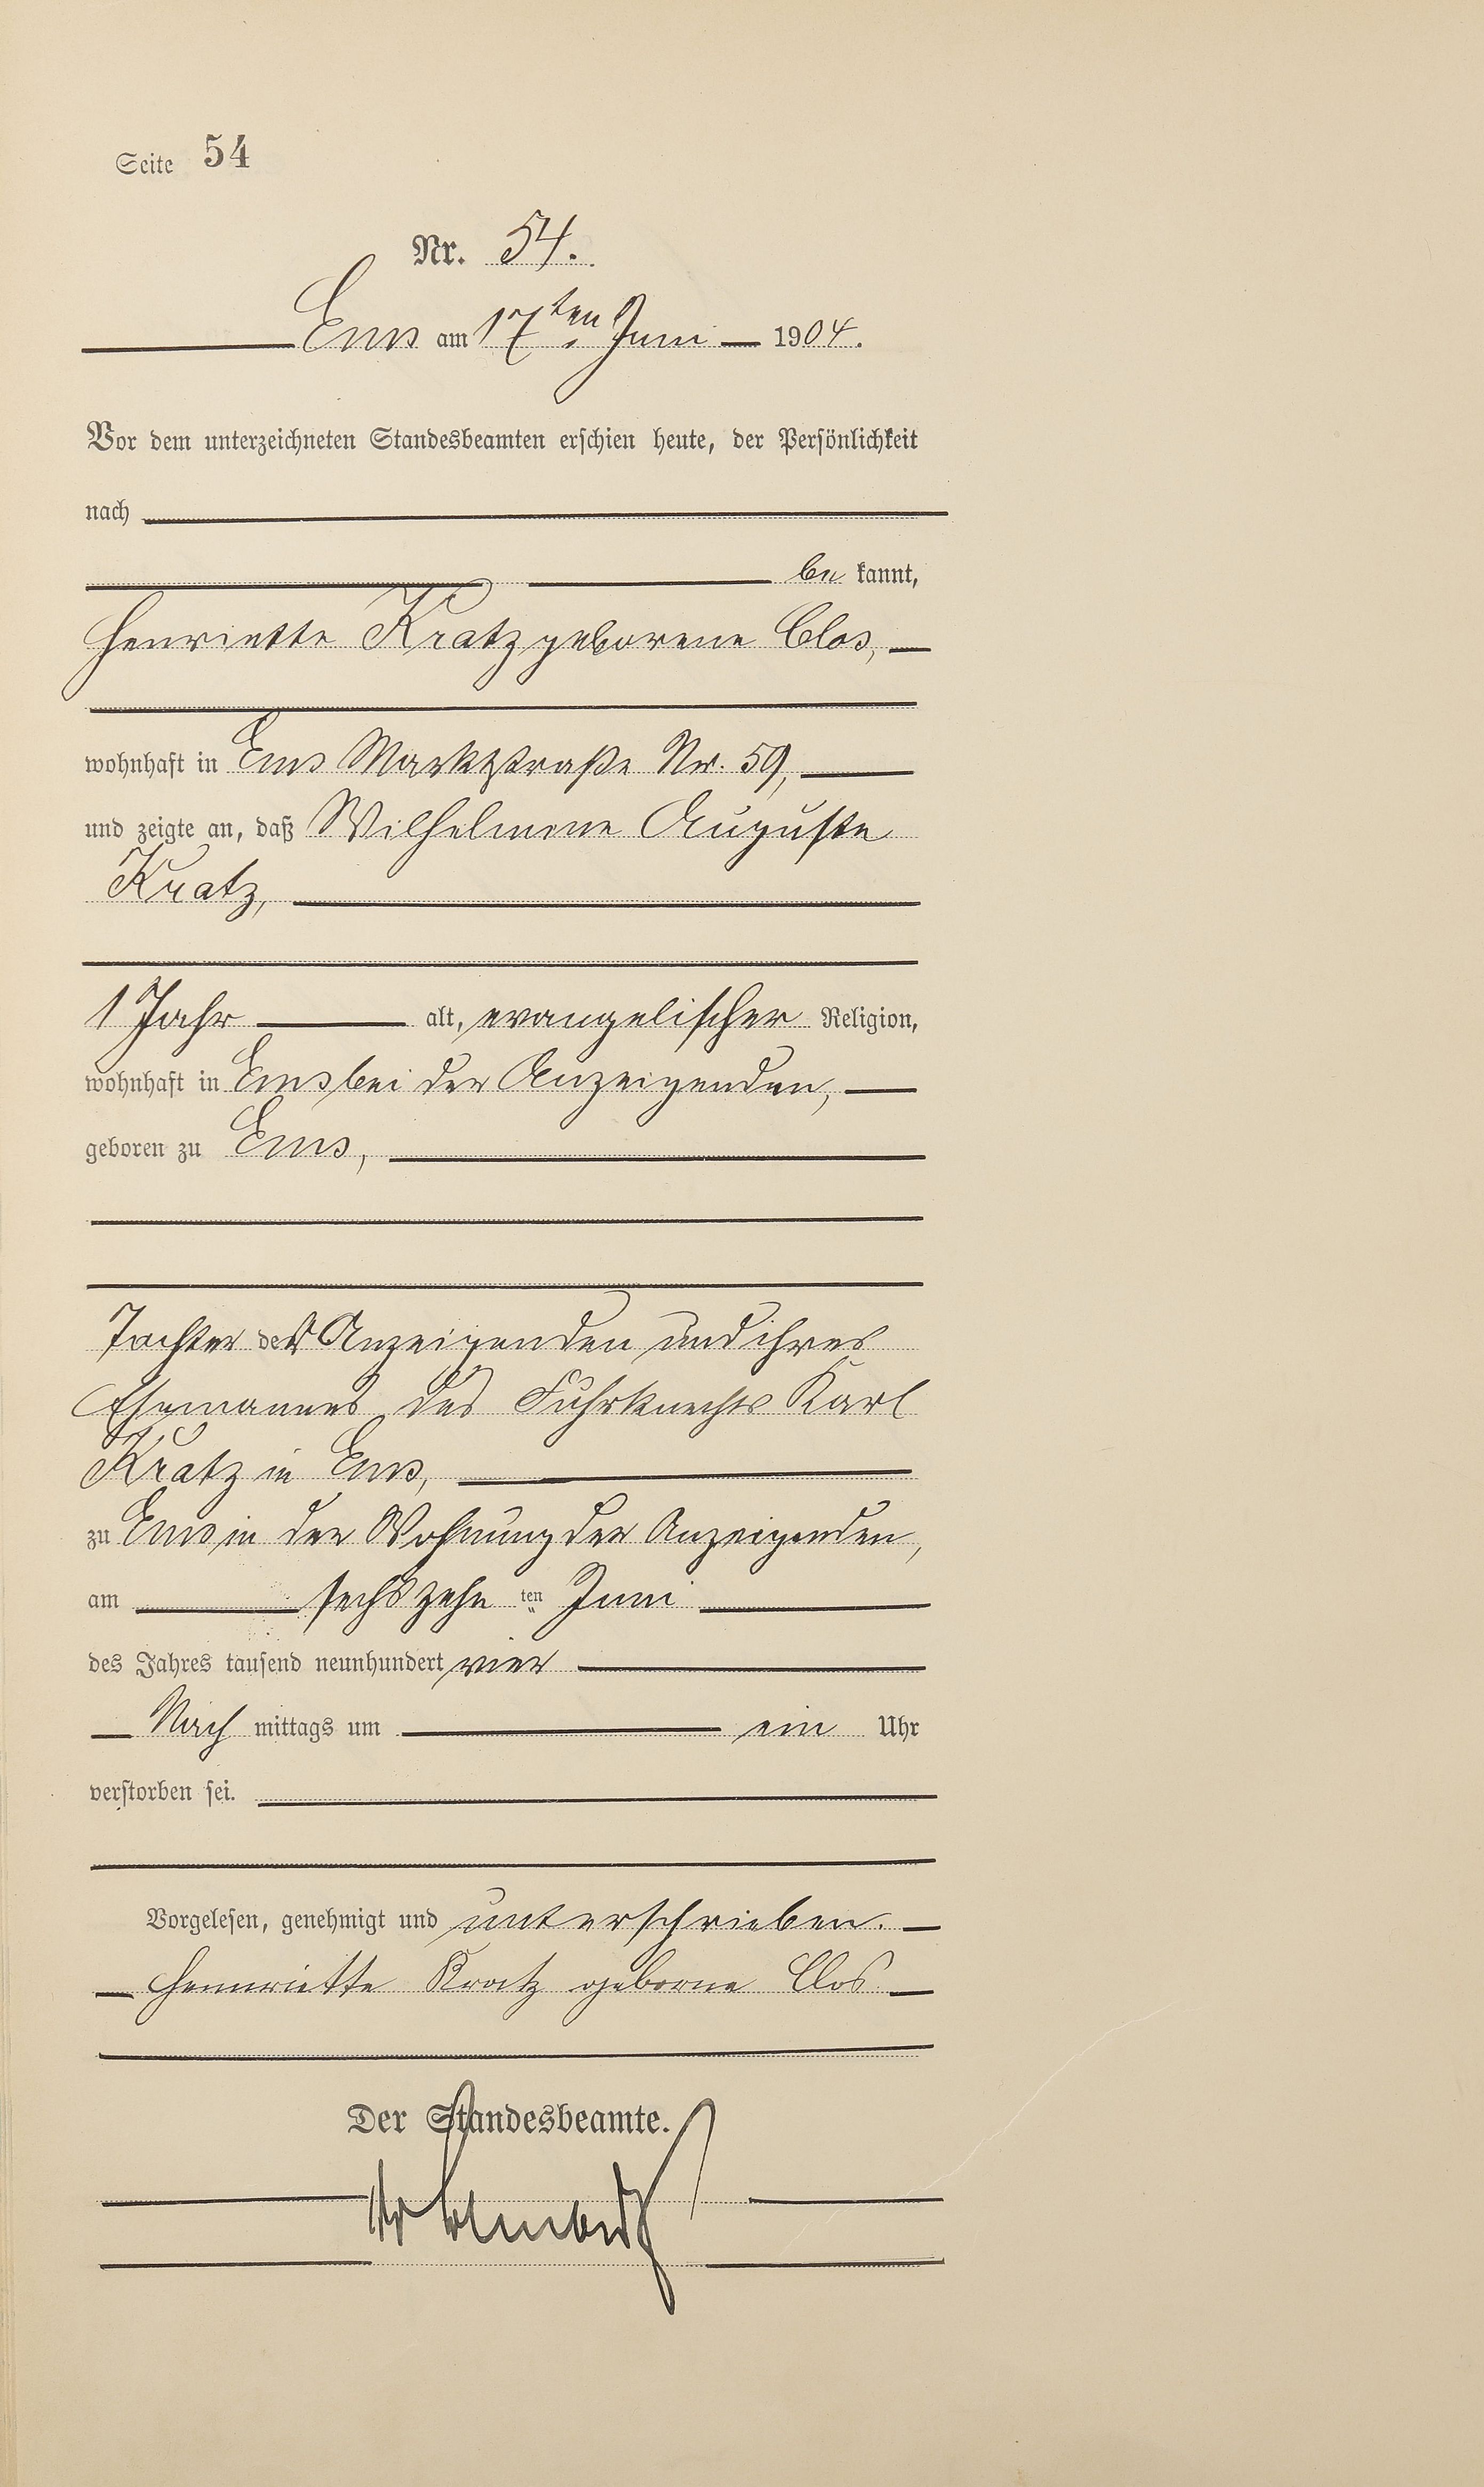 Seite 54
Nr. 54.
Ems am 17ten Juni 1904.
Vor dem unterzeichneten Standesbeamten erschien heute, der Persönlichkeit
nach
be kannt,
Henriette Kratz geborene Clos,
wohnhaft in Ems Marktstraße Nr. 59,
und zeigte an, daß Wilhelmine Auguste
Kratz,
1 Jahr alt, evangelischer Religion,
wohnhaft in Ems bei der Anzeigenden,
geboren zu Ems,
Tochter der Anzeigenden und ihres
Ehemannes des Fuhrknechts Karl
Kratz in Ems,
zu Ems in der Wohnung der Anzeigenden,
am sechszehn ten Juni
des Jahres tausend neunhundert vier
Nach mittags um ein Uhr
verstorben sei.
Vorgelesen, genehmigt und unterschrieben.
Hennriette Kratz geborne Clos
Der Standesbeamte.